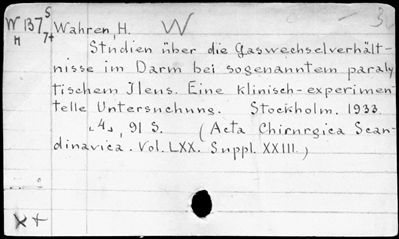 W 137 S Wahren, H. W
H 7+
Studien über die Gaswechselverhält-
nisse im Darm bei sogenanntem paraly
tischem Ileus. Eine klinisch-experimen
telle Untersuchung. Stockholm. 1933.
4, 91 S. (Acta Chirurgica Scan-
dinavica. Vol. LXX. Suppl. XXIII.)